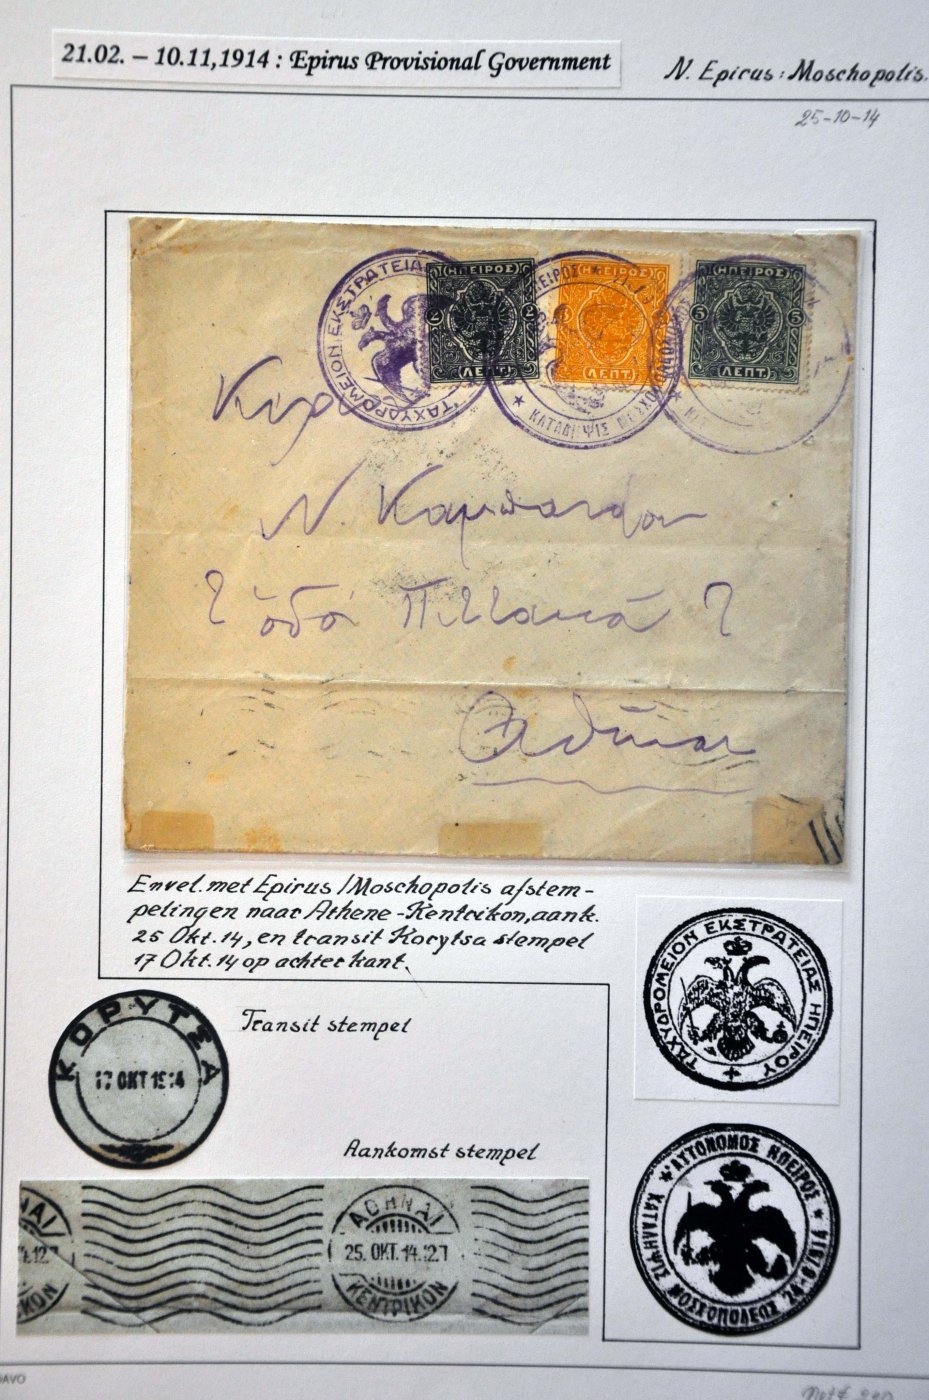 21.02. – 10.11,1914 : Epirus Provisional Government
N. Epirus : Moschopolis.
25-10-14
ΤΑΧΥΔΡΟΜΕΙΟΝ ΕΚΣΤΡΑΤΕΙΑ
ΗΠΕΙΡΟΣ
2 2
ΛΕΠΤ.
ΗΠΕΙΡΟΣ
ΛΕΠΤ.
ΗΠΕΙΡΟΣ
5 5
ΛΕΠΤ.
ΠΕΙΡΟΣ
ΚΑΤΑΛΗΨΙΣ
Ν.
ὁδό
Envel. met Epirus / Moschopolis afstem-
pelingen naar Athene-Kentrikon, aank.
25 Okt. 14, en transit Korytsa stempel
17 Okt. 14 op achterkant.
ΤΑΧΥΔΡΟΜΕΙΟΝ ΕΚΣΤΡΑΤΕΙΑΣ ΗΠΕΙΡΟΥ
Transit stempel
ΚΟΡΥΤΣΑ
17 ΟΚΤ 1914
Aankomst stempel
ΑΥΤΟΝΟΜΟΣ ΗΠΕΙΡΟΣ
ΚΑΤΑΛΗΨΙΣ ΜΟΣΧΟΠΟΛΕΩΣ 24-8/1914
ΝΑΙ
4.12?
ΚΟΝ
ΑΘΗΝΑΙ
25. ΟΚΤ. 14.12?
ΚΕΝΤΡΙΚΟΝ
DAVO